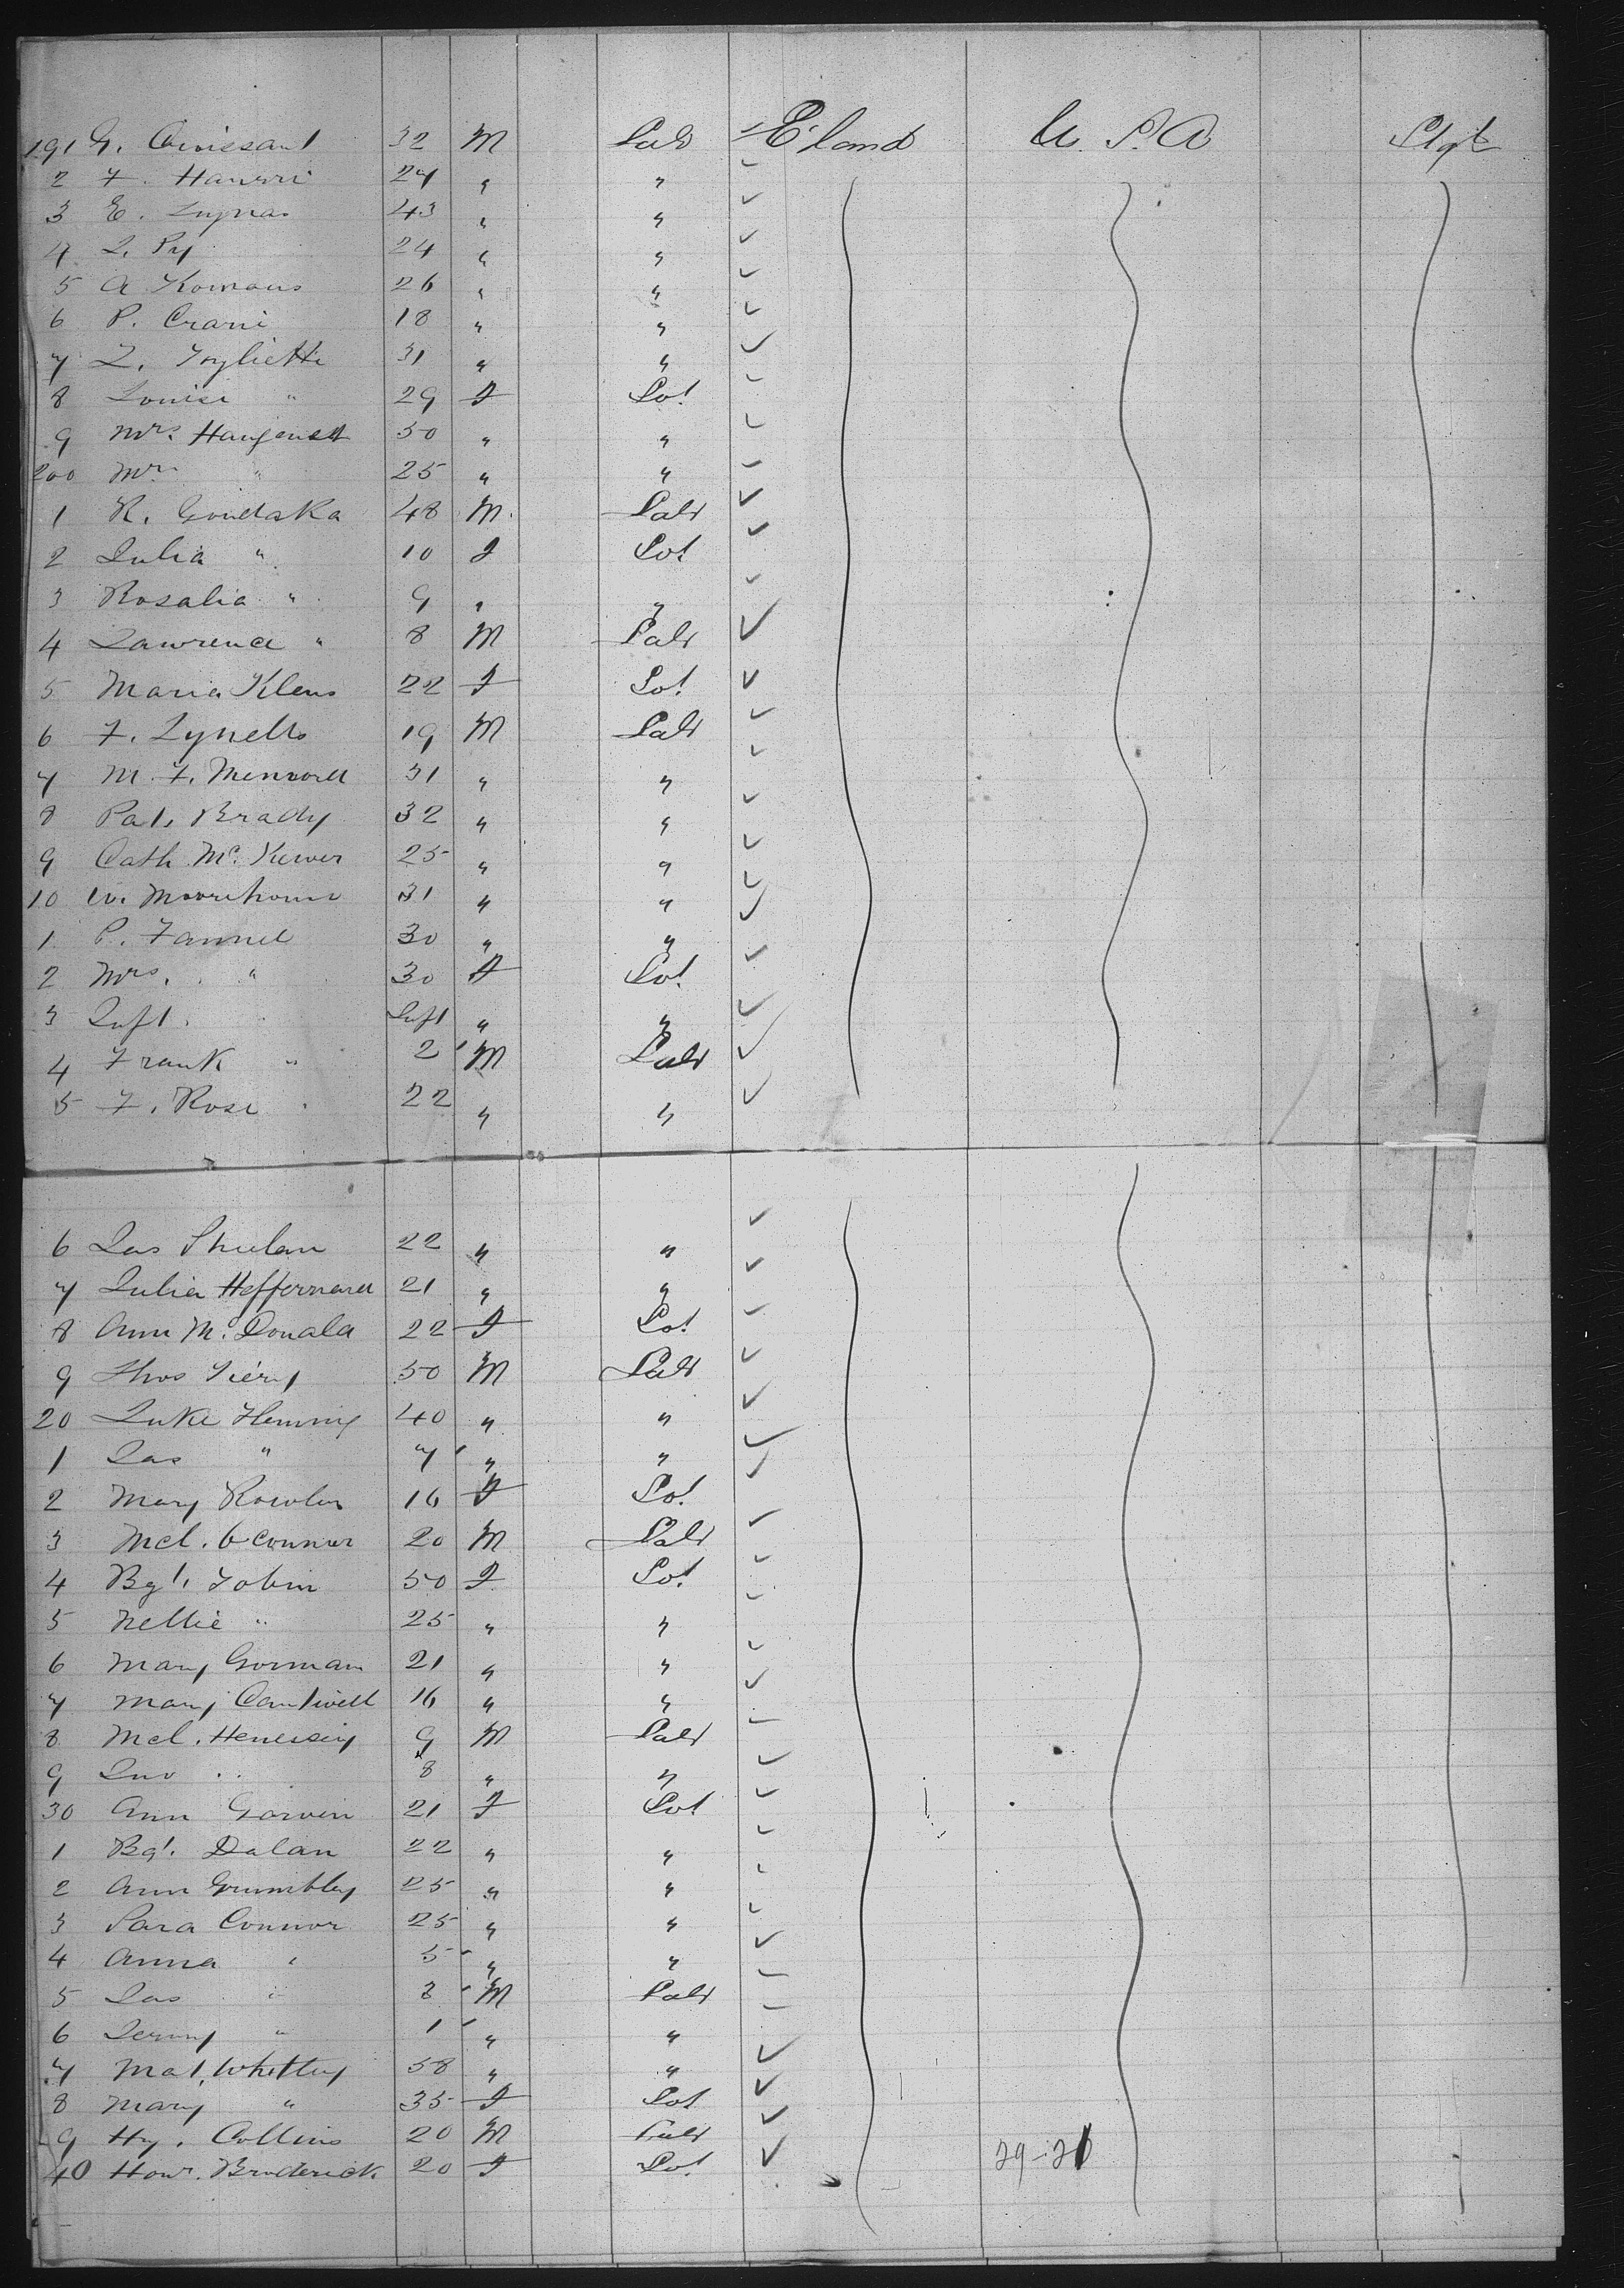 191 G. Croissant 32 M Lab E'land U.S.A Stge
2 F. Hausri 27 " " ✓
3 E. 43 " " ✓
4 L. Py 24 " " ✓
5 A Komaus 26 " " ✓
6 P. Crani 18 " " ✓
7 L. Toglietti 31 " " ✓
8 Louise " 29 F Sp! ✓
9 Mrs. 50 " " ✓
200 Mr. " 25 " " ✓
1 R. Goudaska 48 M. Lab ✓
2 Julia " 10 F Sp! ✓
3 Rosalia " 9 " " ✓
4 Lawrence " 8 M Lab ✓
5 Maria Klens 22 F Sp! ✓
6 F. Lynells 19 M Lab ✓
7 M. F. 31 " " ✓
8 Pat. Brady 32 " " ✓
9 Cath Mc. 25 " " ✓
10 W. Moorehouse 31 " " ✓
1 P. Fannel 30 " " ✓
2 Mrs. " 30 F Sp! ✓
3 Inft. Inft " " ✓
4 Frank " 2 M Lab ✓
5 F. Rose 22 " " ✓
6 Jas Phelan 22 " " ✓
7 Julia Heffernan 21 " " ✓
8 Ann Mc. Donald 22 F Sp! ✓
9 Thos Tierny 50 M Lab ✓
20 Luke Fleming 40 " " ✓
1 Jas " 7 " " ✓
2 Mary 16 F Sp! ✓
3 Mcl. O'Connor 20 M Lab ✓
4 Bgt. Tobin 50 F Sp! ✓
5 Nellie " 25 " " ✓
6 Mary Gorman 21 " " ✓
7 Mary Cantwell 16 " " ✓
8 Mcl. Henessey 9 M Lab ✓
9 Jno " 8 " " ✓
30 Ann Garvin 21 F Sp! ✓
1 Bgt. Dolan 22 " " ✓
2 Ann Grumbley 25 " " ✓
3 Sara Connor 25 " " ✓
4 Anna " 5 " " ✓
5 Jas " 3 M Lab ✓
6 Jeremy " 1 " " ✓
7 Mat. Whittey 58 " " ✓
8 Mary " 35 F Sp! ✓
9 Hy. Collins 20 M Lab ✓
40 Honr. Broderick 20 F Sp! ✓ 29-21